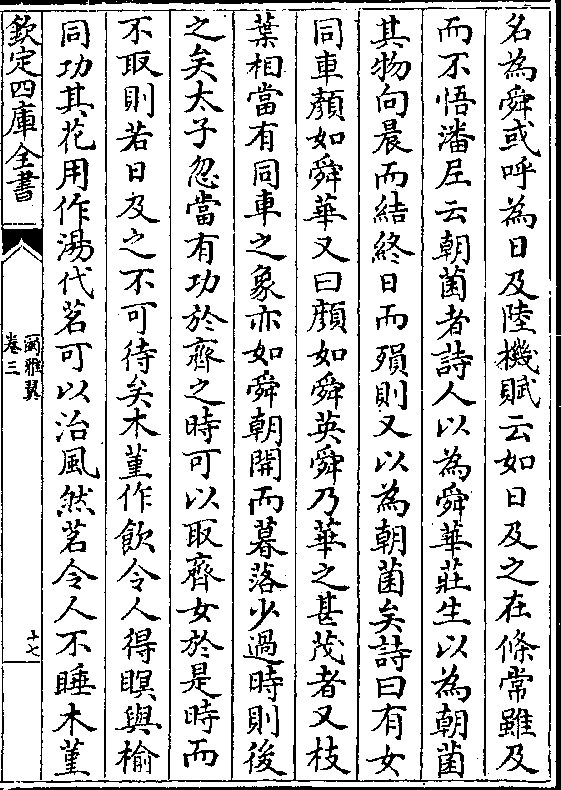 名為舜或呼為日及陸機賦云如日及之在條常雖及
而不悟潘尼云朝菌者詩人以為舜華莊生以為朝菌
其物向晨而結終日而殞則又以為朝菌矣詩曰有女
同車顏如舜華又曰顏如舜英舜乃華之甚茂者又枝
葉相當有同車之象亦如舜朝開而暮落少過時則後
之矣太子忽當有功於齊之時可以取齊女於是時而
不取則若日及之不可待矣木堇作飲令人得瞑與榆
同功其花用作湯代茗可以治風然茗令人不睡木堇
欽定四庫全書
爾雅翼
卷三
十七